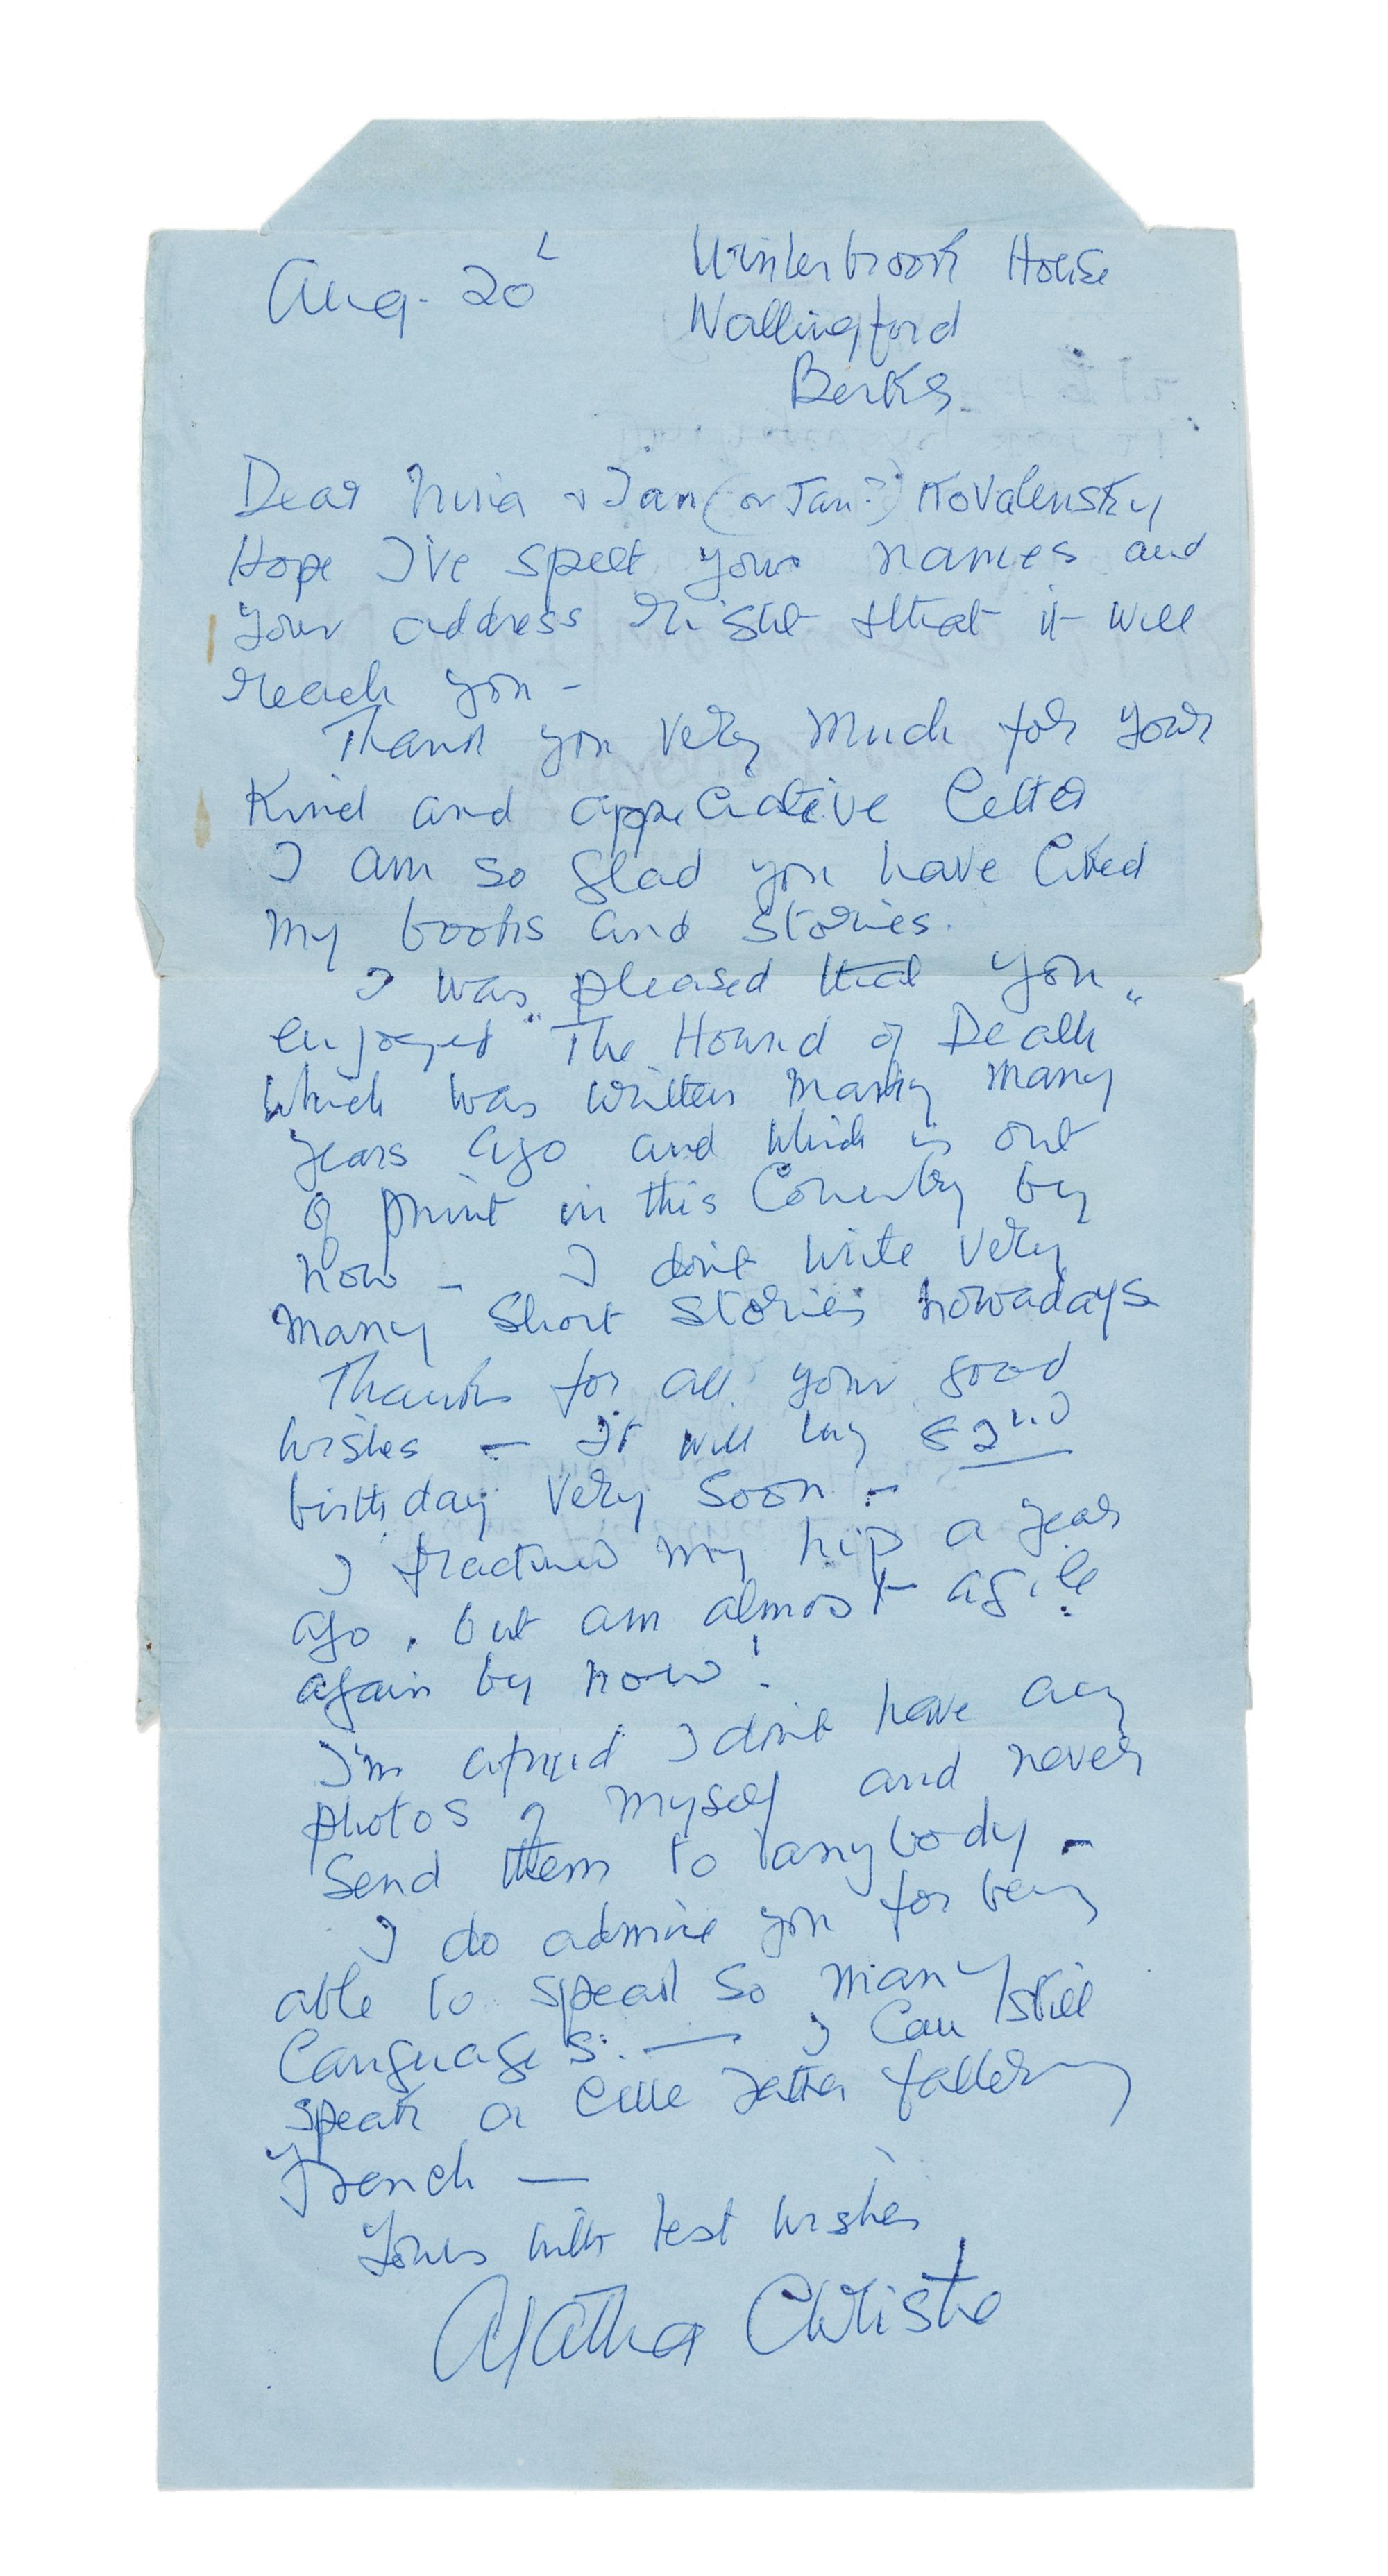 Aug. 20
Winterbrook House
Wallingford
Berks.
Dear Nina & Ian (or Jan?) Kovalensky
Hope I've spelt your names and
your address right & that it will
reach you -
Thank you very much for your
kind and appreciative letter
I am so glad you have liked
my books and stories.
I was pleased that you
enjoyed "The Hound of Death"
which was written many many
years ago and which is out
of print in this Country by
now - I don't write very
many short stories nowadays
Thanks for all your good
wishes - It will be my 82nd
birthday very soon -
I fractured my hip a year
ago, but am almost agile
again by now!
I'm afraid I don't have any
photos of myself and never
send them to anybody -
I do admire you for being
able to speak so many
languages. — I can still
speak a little rather faltering
French —
Yours with best wishes
Agatha Christie